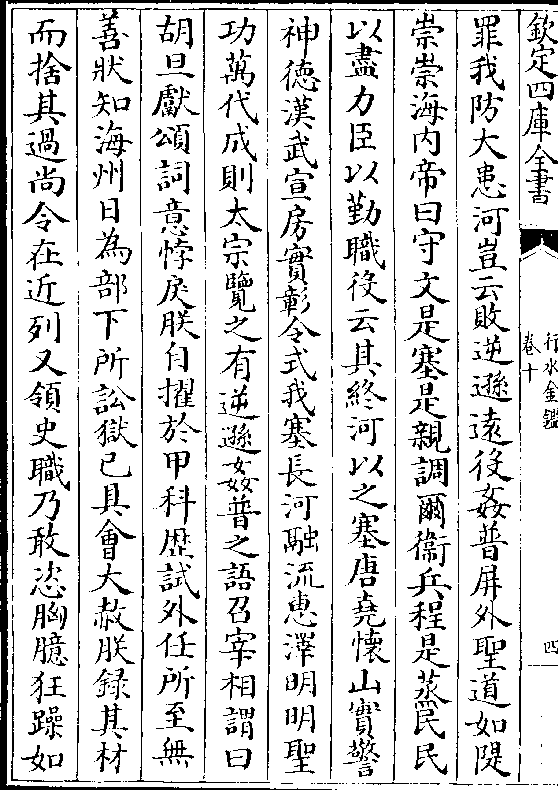 欽定四庫全書
行水金鑑
卷十
四
罪我防大患河豈云敗逆遜遠役姦普屏外聖道如隄
崇崇海內帝曰守文是塞是親調爾衞兵程是蒸民民
以盡力臣以勤職役云其終河以之塞唐堯懷山實警
神德漢武宣房實彰令式我塞長河融流惠澤明明聖
功萬代成則太宗覽之有逆遜姦普之語召宰相謂曰
胡旦獻頌詞意悖戾朕自擢於甲科歴試外任所至無
善狀知海州日為部下所訟獄已具會大赦朕録其材
而捨其過尚令在近列又領史職乃敢恣胸臆狂躁如